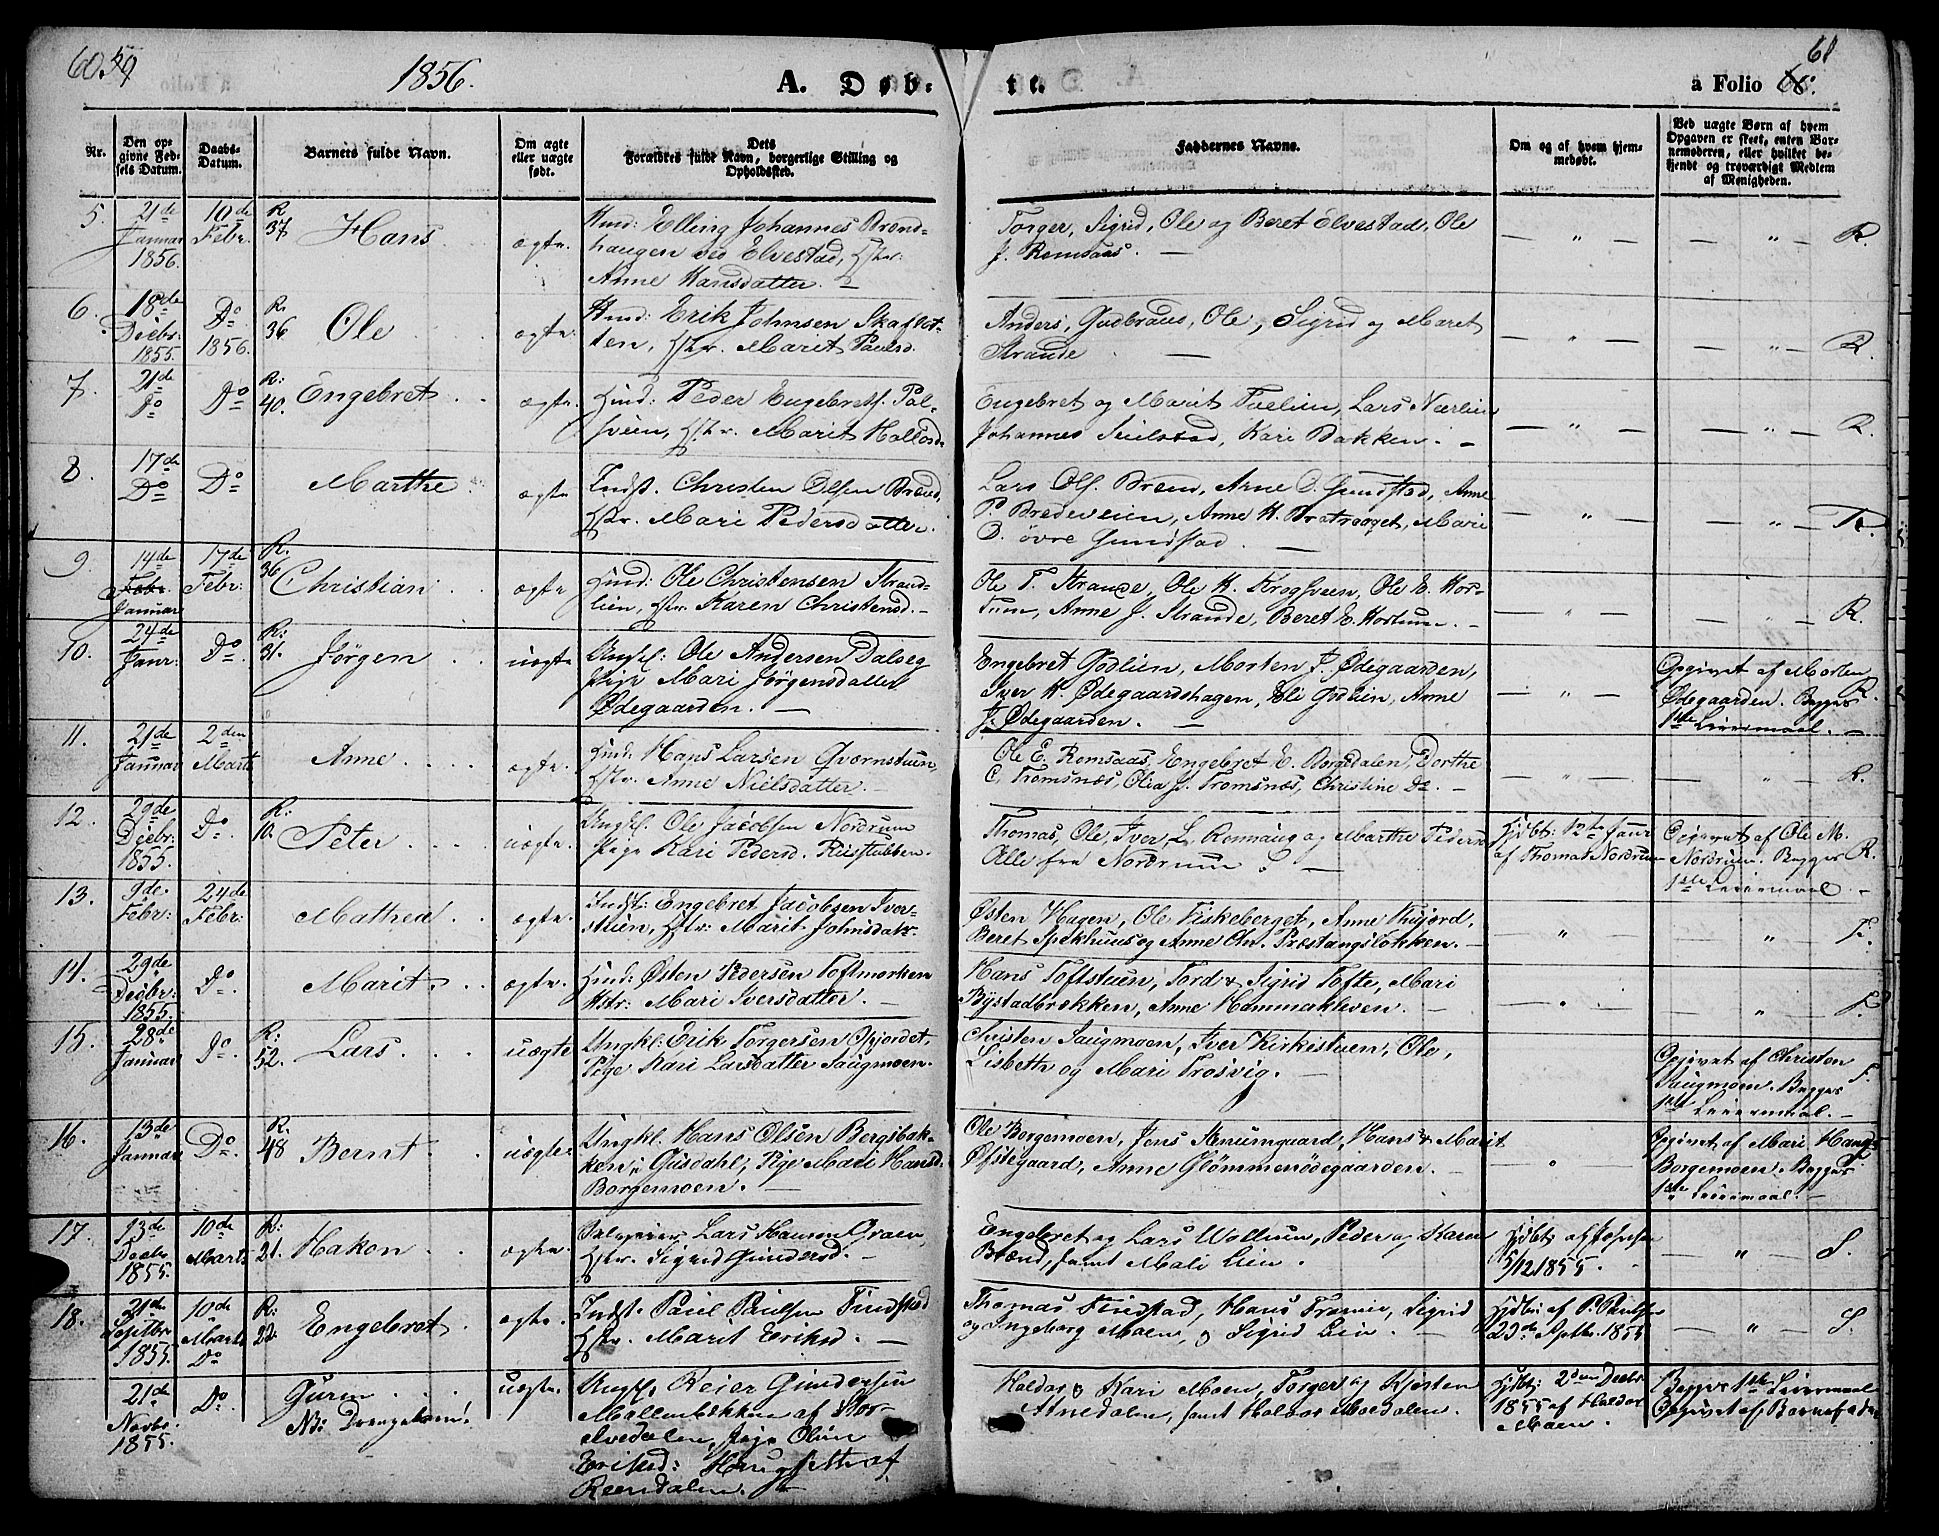 60. 59
1856.
A. Døb-
te.
61
a Folio 60.
Nr.
Den op-
givne Fød-
sels Datum.
Daabs-
Datum.
Barnets fulde Navn.
Om ægte
eller uægte
født.
Dets
Forældres fulde Navn, borgerlige Stilling og
Opholdssted.
Faddernes Navne.
Om og af hvem hjem-
medøbt.
Ved uægte Børn af hvem
Opgaven er skeet, enten Bar-
nemoderen, eller hvilket be-
kjendt og troværdigt Medlem
af Menigheden.
5. 21de Januar 1856. 10de Febr. R. 37. Hans ægte.
Hmd: Elling Johannes Brænd-
haugen ved Elvestad, Hstr:
Anne Hansdatter.
Torger, Sigrid, Ole og Beret Elvestad, Ole
J. Romsaas. —
— " — — " — R.
6. 18de Decbr. 1855. Do 1856. R. 36 Ole ægte.
Hmd: Erik Johnsen Skaflot-
ten, Hstr. Marit Paulsd.
Anders, Gudbrand, Ole, Sigrid og Marit
Strande —
— " — — " — R.
7. 21de Do Do R: 40. Engebret ægte.
Hmd: Peder Engebrets. Pal-
sveen, Hstr. Marit Halvord.
Engebret og Marit Faelien, Lars Nærlien
Johannes Seilstad, Kari Bakken. —
— " — — " — R.
8. 17de Do Do Marthe ægte
Indst. Christen Olsen Brænd,
Hstr. Mari Pedersdatter.
Lars Ols. Bræn, Arne D. Gunstad, Anne
P. Bredeveien, Anne H. Bratroget, Mari
D. øvre Gunstad. —
— " — — " — R.
9. 14de Febr. Januar 17de Febr: R. 36 Christian ægte
Hmd: Ole Christensen Strand-
lien, Hstr. Karen Christensd. —
Ole T. Strande, Ole H. Krogsveen, Ole E. Hor-
tum, Anne J. Strande, Beret E. Hortum. —
— " — — " — R.
10. 24de Janr: Do R: 31. Jørgen uægte
Ungkl: Ole Andersen Dalseg
Pige Mari Jørgensdatter
Ødegaarden. —
Engebret Godlien, Morten J. Ødegaarden,
Iver H. Ødegaardshagen, Eli Godlien, Anne
J. Ødegaarden. —
— " —
Opgivet af Morten
Ødegaarden. Begges R.
1ste Leiermaal. —
11. 21de Januar 2den Marts Anne ægte
Hmd: Hans Larsen Qvernstuen,
Hstr. Anne Nielsdatter. —
Ole E. Romsaas, Engebret E. Borgedalen, Dorthe
E. Tromsnæs, Olea J. Tromsnæs, Christine Do. —
— " — — " — R.
12. 29de Decbr: 1855. Do. R: 10. Peter uægte.
Ungkl. Ole Jacobsen Nordrum
Pige Kari Pedersd. Riisstubben.
Thomas, Ole, Iver L. Romaug og Marthe Peders
Alle fra Nordrum —
Hjdbt: 12te Janr
af Thomas Nordrum
Opgivet af Ole M.
Nordrum. Begges R.
1ste Leiermaal —
13. 9de Febr: 24de Febr: Mathea ægte.
Indst: Engebret Jacobsen Iver-
stuen, Hstr: Marit Johnsdatr.
Østen Hagen, Ole Fiskeberget, Anne Kujord,
Beret Spekhuus og Anne Chr. Præstangsløkken. —
— " — — " — F.
14. 29de Decbr: 1855. Do. Marit ægte.
Hmd: Østen Pedersen Toftmorken
Hstr: Mari Iversdatter. —
Hans Toftstuen, Tord & Sigrid Tofte, Mari
Bystadbrekken, Anne Hammerkleven. —
— " — " F.
15. 28de Januar Do. R: 52. Lars uægte
Ungkl: Erik Torgersen Opjordet,
Pige Kari Larsdatter Saugmoen.
Christen Saugmoen, Iver Kirkestuen, Ole,
Lisbeth og Mari Trosvig. —
Opgivet af Christen
Saugmoen. Begges F.
1ste Leiermaal. —
16. 13de Januar Do. R. 48 Bernt uægte
Ungkl. Hans Olsen Bergsbak-
ken i Gusdahl, Pige Mari Hansd.
Borgemoen. —
Ole Borgemoen, Jens Stenumgaard, Hans & Marit
Øfstegaard, Anne Glømmenødegaarden. —
— " —
Opgivet af Mari Hansd.
Borgemoen. Begges F.
1ste Leiermaal. —
17. 13de Decbr 1855. 10de Marts R: 21. Hakon ægte.
Lars Hansen Graen
Hstr. Sigrid Gundersd. —
Engebret og Lars Wollum, Peder og Karen
Brænd, samt Mali Lien. —
Hjdbt.
5/12 1855.
— " — S.
18. 21de Septbr 1855. 10de Marts Do R: 22. Engebret ægte.
Indst. Paul Paulsen Findstad
Hstr. Marit Eriksd. —
Thomas Findstad, Hans Tromie, Sigrid
og Ingeborg Moen, og Sigrid Lien. —
Hjdbt: af P. Paulsen
23de Septbr. 1855
— " — S.
21de Novbr. 1855. Do. Guren uægte.
NB: Drengebarn!
Ungkl. Reier Gundersen
Mallenbækken af Stor-
elvedalen, Pige Oline
Eriksd: Haugsett af
Reendalen.
Haldor & Kari Moen, Torger og Kjersten
Atnedalen, samt Halvor Moedalen.
Hjdbt: 2den Decbr
1855 af Haldor
Moen.
Begges 1ste Leiermaal
Opgivet af Barnefader